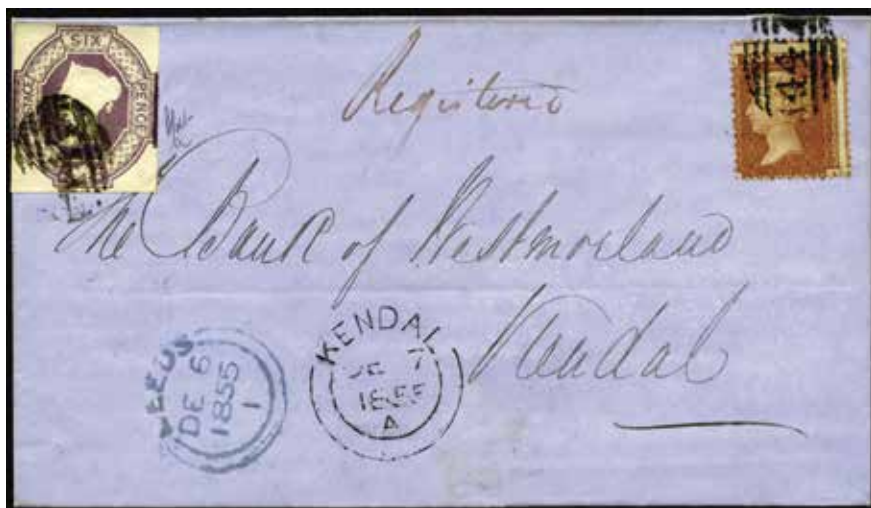 SIX
PENCE
144
Registered
The Bank of Westmoreland
Kendal
LEEDS
DE 6
1855
1
KENDAL
DE 7
1855
A